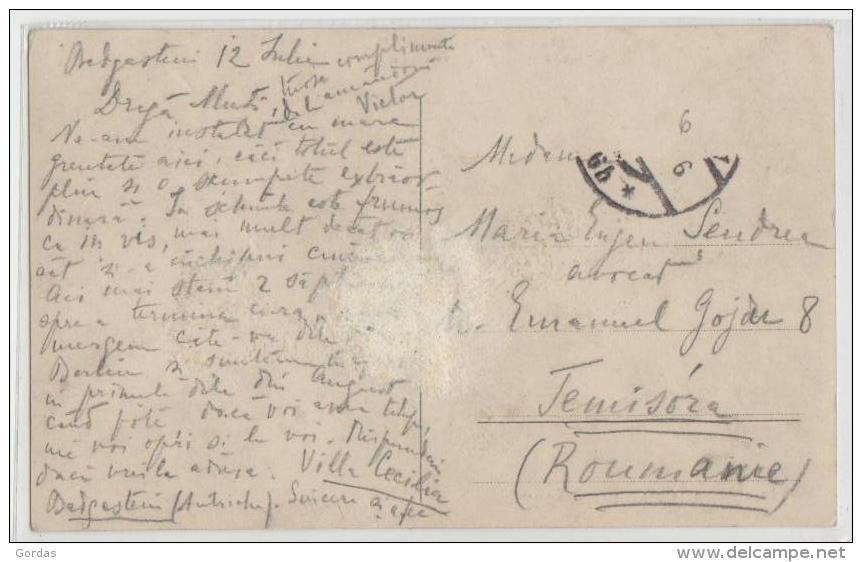 Badgastein 12 Iulie
complimente
Victor
Dragă Muti,
Ne-am instalat cu mare
greutate aici, căci totul este
plin și o scumpete extraor-
dinară. În schimb este frumos
ca în vis, mai mult decât
cât și-a închipui
Aci mai stăm 2
spre a termina cura,
mergem câte-va zile
Berlin și suntem
în primele zile din August
când poate dacă voi avea timp
mă voi opri și la voi. Răspunde-mi
dacă vrei la adresa: Villa Cecilia
Badgastein (Autriche). Sincere
Madam
Maria Eugen Sendrea
avocat
Emanuel Gojdu 8
Temisóra
(Roumanie)
6
6
Gordas
www.delcampe.net